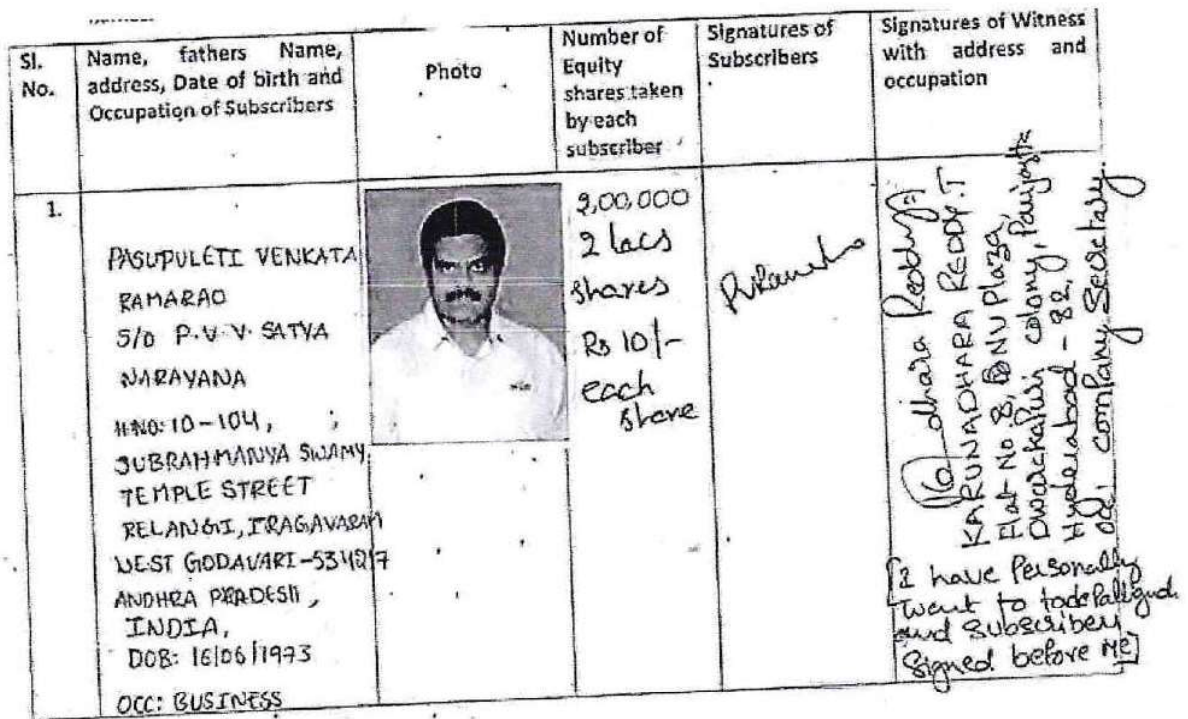 Sl.
No.
Name, fathers Name,
address, Date of birth and
Occupation of Subscribers
Photo
Number of
Equity
shares taken
by each
subscriber
Signatures of
Subscribers
Signatures of Witness
with address and
occupation
1.
PASUPULETI VENKATA
RAMARAO
S/O P.V.V. SATYA
NARAYANA
H.NO: 10-104,
SUBRAHMANYA SWAMY
TEMPLE STREET
RELANGI, IRAGAVARAM
WEST GODAVARI-534217
ANDHRA PRADESH,
INDIA,
DOB: 16/06/1973
OCC: BUSINESS
2,00,000
2 lacs
shares
Rs 10/-
each
share
dhara Reddy
KARUNADHARA REDDY.T
Flat-No 8, Plaza,
Dwarakapuri colony,
Hyderabad - 82,
occ: company Secretary.
[I have Personally
want to
and Subscriber
Signed before me]